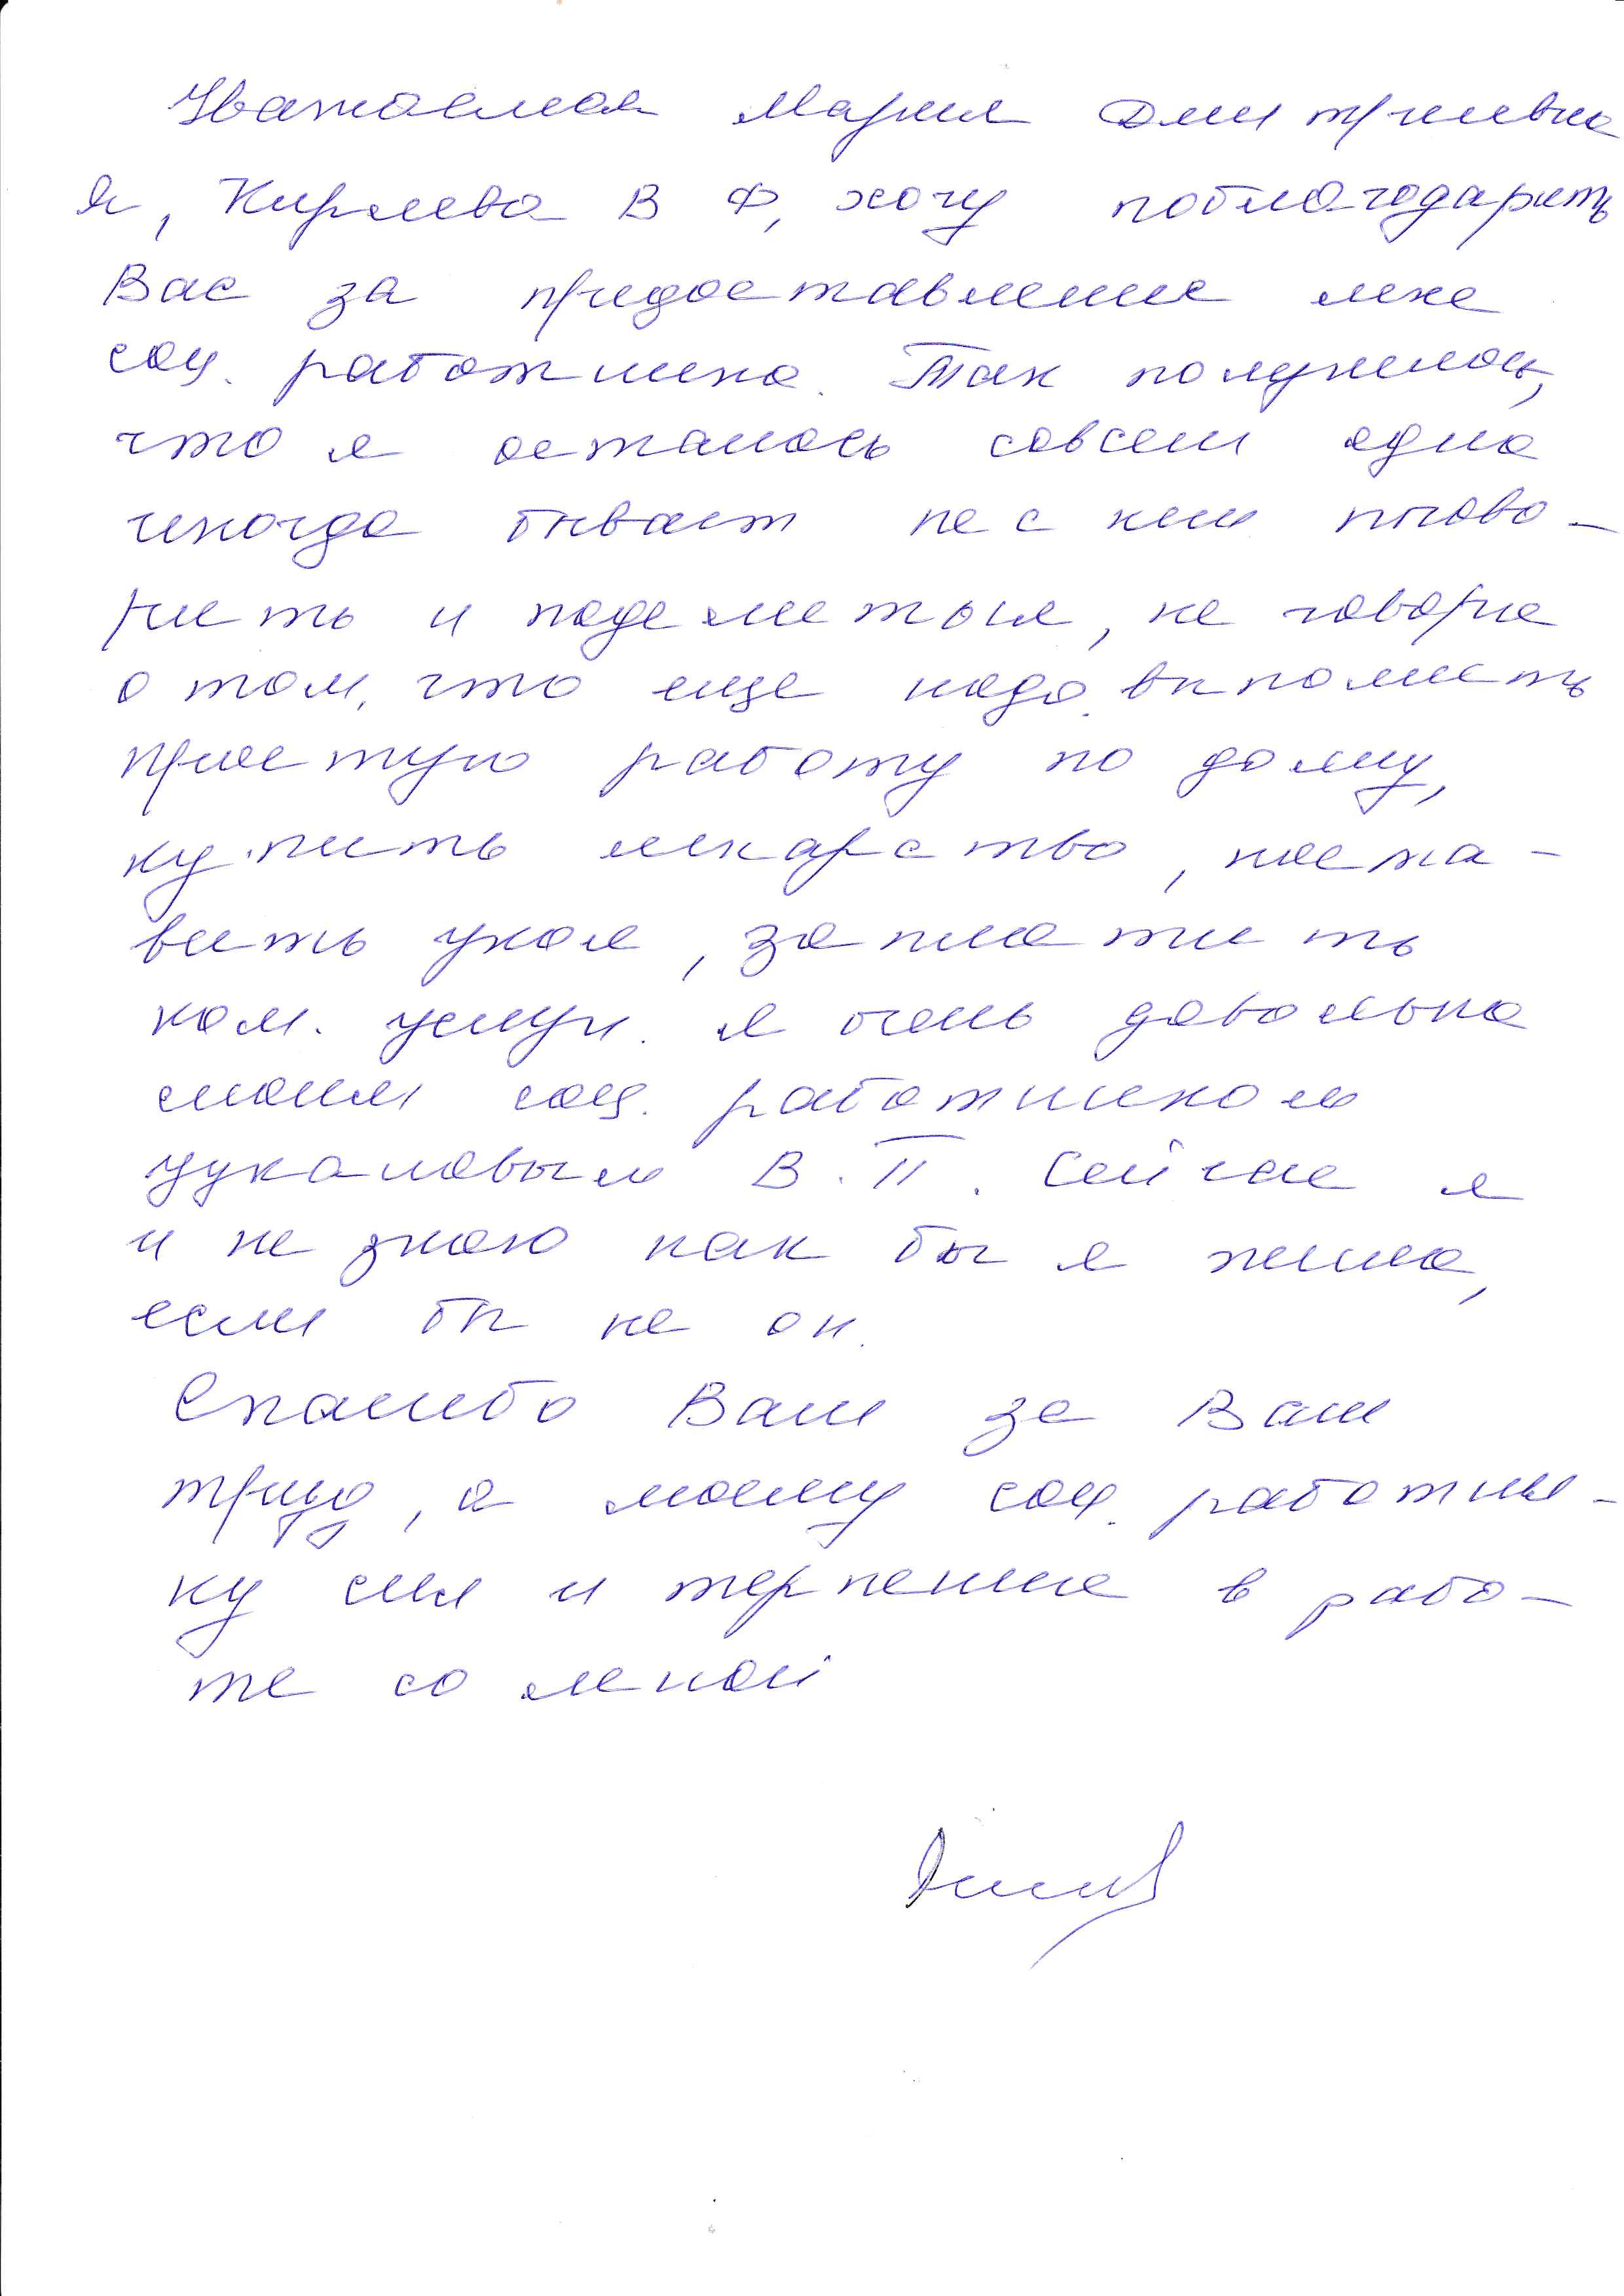 Уважаемая Мария Дмитриевна
Я, Киреева В Ф, хочу поблагодарить
Вас за предоставление мне
соц. работника. Так получилось,
что я осталась совсем одна
иногда бывает не с кем погово-
рить и поделиться, не говоря
о том, что еще надо выполнить
простую работу по дому,
купить лекарство, поста-
вить укол, заплатить
ком. услуги. Я очень довольна
своим соц. работником
Цукановым В. П. Сейчас я
и не знаю как бы я жила,
если бы не он.
Спасибо Вам за Ваш
труд, а моему соц. работни-
ку сил и терпение в рабо-
те со мной